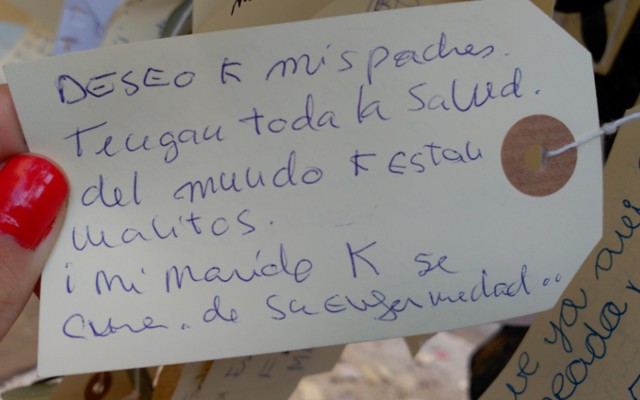 DESEO K mis padres.
Tengan toda la salud.
del mundo K estan
malitos.
i mi marido K se
cure. de su enfermedad..
ve ya